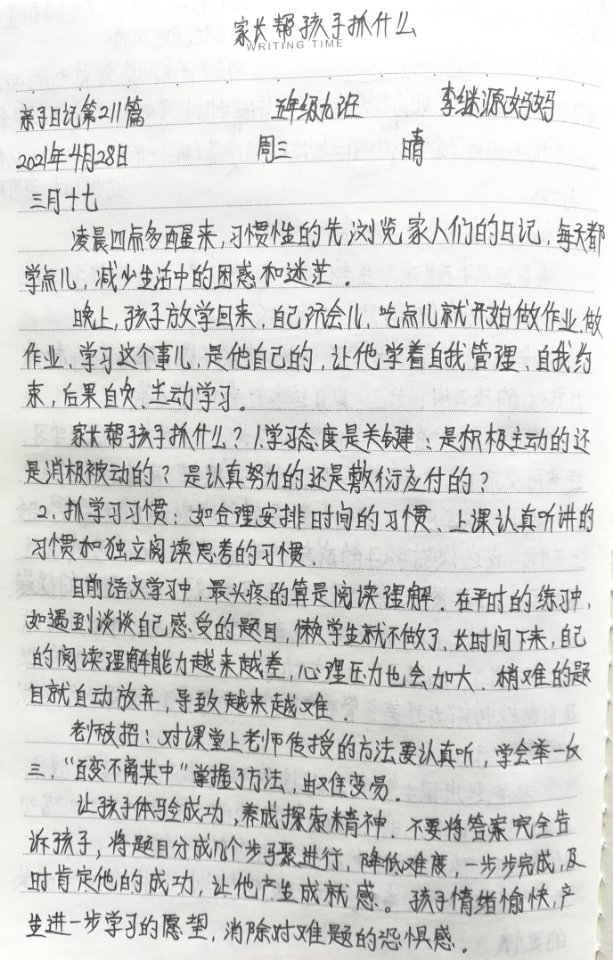 家长帮孩子抓什么
WRITING TIME
亲子日记第211篇 五年级九班 李继源妈妈
2021年4月28日 周三 晴
三月十七
凌晨四点多醒来,习惯性的先浏览家人们的日记,每天都
学点儿,减少生活中的困惑和迷茫.
晚上,孩子放学回来,自己玩会儿,吃点儿就开始做作业,做
作业、学习这个事儿,是他自己的,让他学着自我管理、自我约
束,后果自负、主动学习。
家长帮孩子抓什么?1.学习态度是关键:是积极主动的还
是消极被动的?是认真努力的还是敷衍应付的?
2、抓学习习惯:如合理安排时间的习惯、上课认真听讲的
习惯和独立阅读思考的习惯.
目前语文学习中,最头疼的算是阅读理解.在平时的练习中,
如遇到谈谈自己感受的题目,懒学生就不做了,长时间下来,自己
的阅读理解能力越来越差,心理压力也会加大、稍难的题
目就自动放弃,导致越来越难.
老师破招:对课堂上老师传授的方法要认真听,学会举一反
三,“百变不离其中”掌握了方法,由难变易.
让孩子体验成功,养成探索精神.不要将答案完全告
诉孩子,将题目分成几个步骤进行,降低难度,一步步完成,及
时肯定他的成功,让他产生成就感。孩子情绪愉快,产
生进一步学习的愿望,消除对难题的恐惧感.